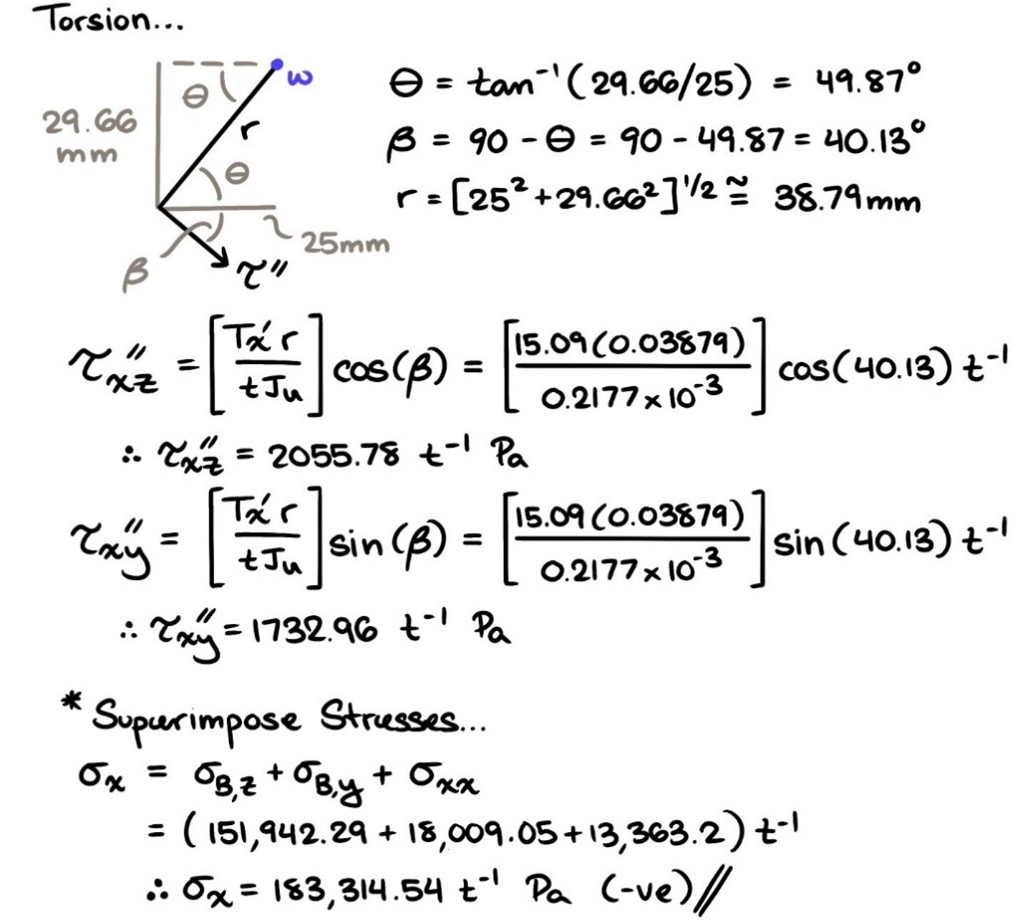 Torsion...
ω
θ
θ = tan⁻¹(29.66/25) = 49.87°
29.66
mm
r
θ
β = 90 - θ = 90 - 49.87 = 40.13°
r = [25² + 29.66²]^1/2 ≅ 38.79mm
25mm
β
τ''
τxz'' = [Tx'r / tJu] cos(β) = [15.09(0.03879) / 0.2177 × 10⁻³] cos(40.13) t⁻¹
∴ τxz'' = 2055.78 t⁻¹ Pa
τxy'' = [Tx'r / tJu] sin(β) = [15.09(0.03879) / 0.2177 × 10⁻³] sin(40.13) t⁻¹
∴ τxy'' = 1732.96 t⁻¹ Pa
* Superimpose Stresses...
σx = σB,z + σB,y + σxx
= (151,942.29 + 18,009.05 + 13,363.2) t⁻¹
∴ σx = 183,314.54 t⁻¹ Pa (-ve)//